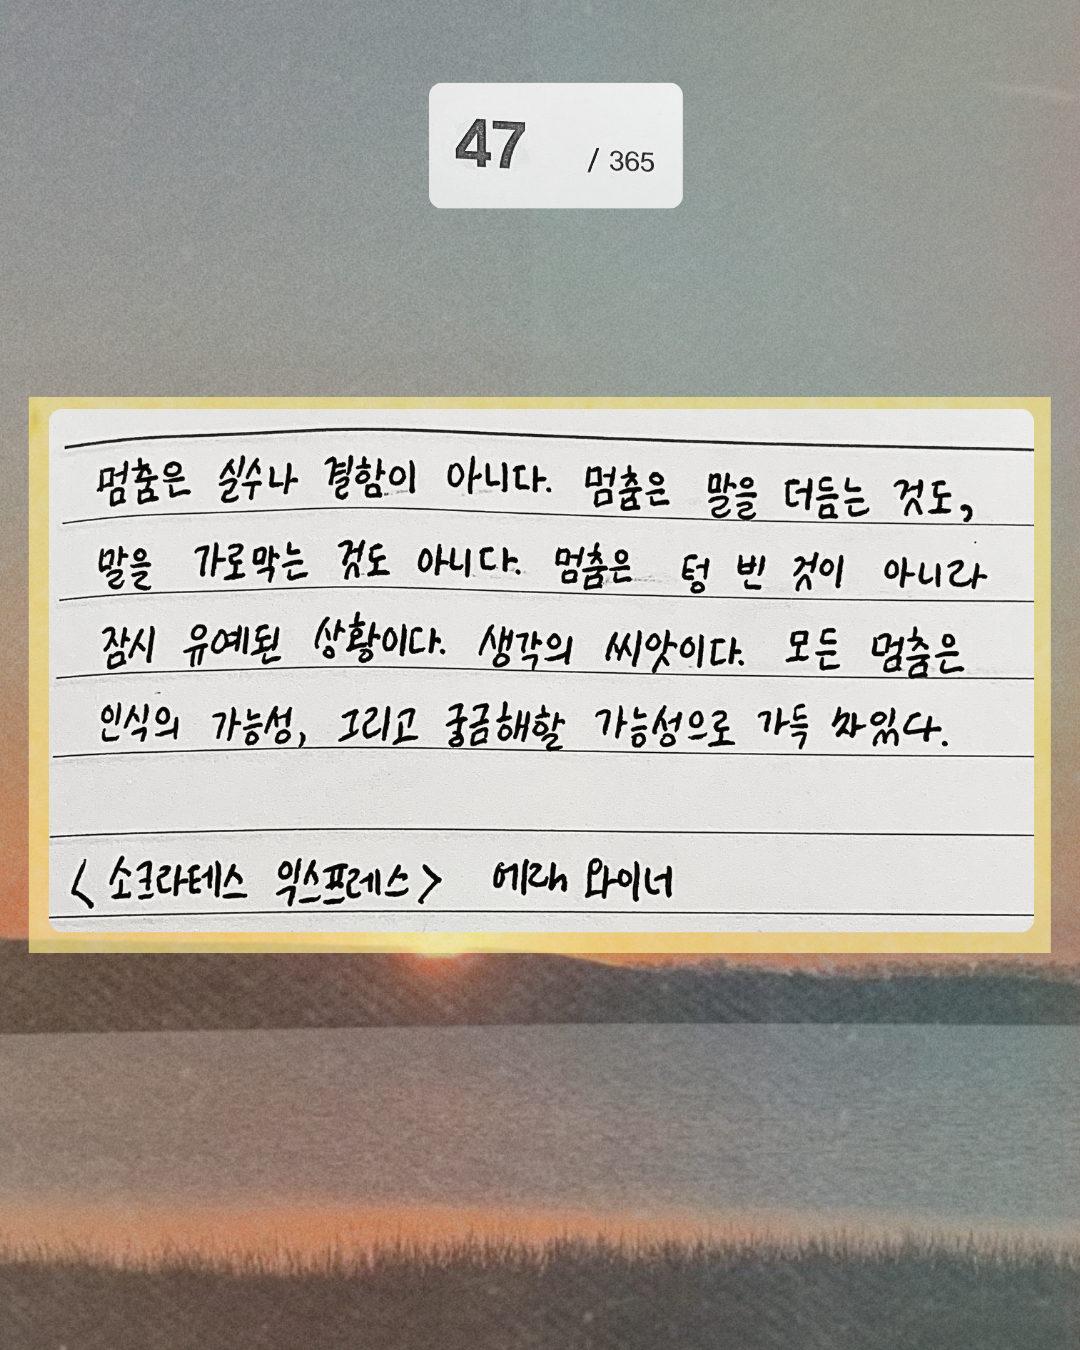 47 / 365
멈춤은 실수나 결함이 아니다. 멈춤은 말을 더듬는 것도,
말을 가로막는 것도 아니다. 멈춤은 텅 빈 것이 아니라
잠시 유예된 상황이다. 생각의 씨앗이다. 모든 멈춤은
인식의 가능성, 그리고 궁금해할 가능성으로 가득 차있다.
<소크라테스 익스프레스> 에릭 와이너